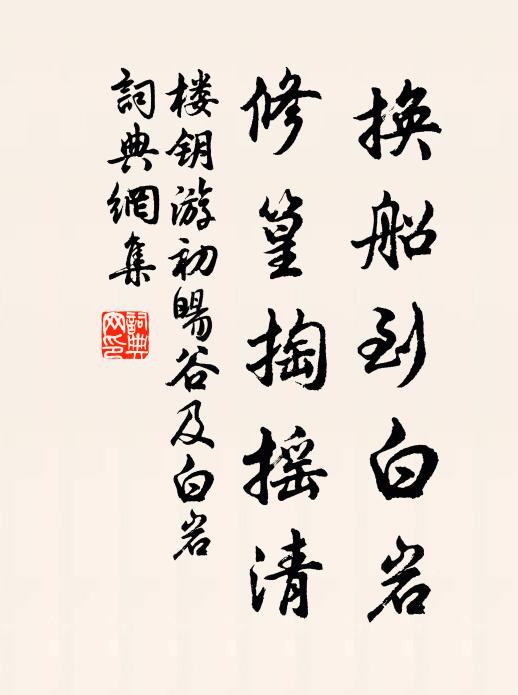 换船到白岩
修篁掏摇清
楼钥游初暘谷及白岩
詞典網集
詞典
网印